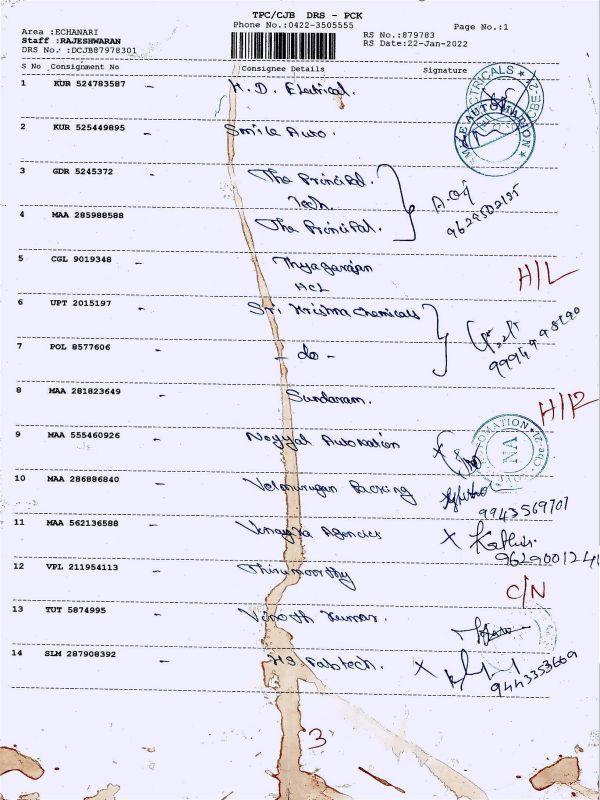 TPC/CJB DRS - PCK
Phone No.:0422-3505555
Page No.:1
Area :ECHANARI
Staff :RAJESHWARAN
DRS No. :DCJB87978301
RS No.:879783
RS Date:22-Jan-2022
S No Consignment No Consignee Details Signature
1 KUR 524783587 - H.D. Electrical.
2 KUR 525449895 - Smile Auto.
3 GDR 5245372 - The Principal.
Tech.
4 MAA 285988588 The Principal.
9629502195
5 CGL 9019348 Thyagarajan
HCL
H/L
6 UPT 2015197 - Sri Krishna Chemicals
7 POL 8577606 - - do -
8 MAA 281823649 - Sundaram.
H/R
9 MAA 555460926 - Noyyal Automation X
10 MAA 286886840 - Velmurugan Packing
9943569701
11 MAA 562136588 - Vinayaka Agencies X
12 VPL 211954113 - Thirumoorthy
C/N
13 TUT 5874995 - Vinoth Kumar.
14 SLM 287908392 - HS Fabtech. X
9443353669
3